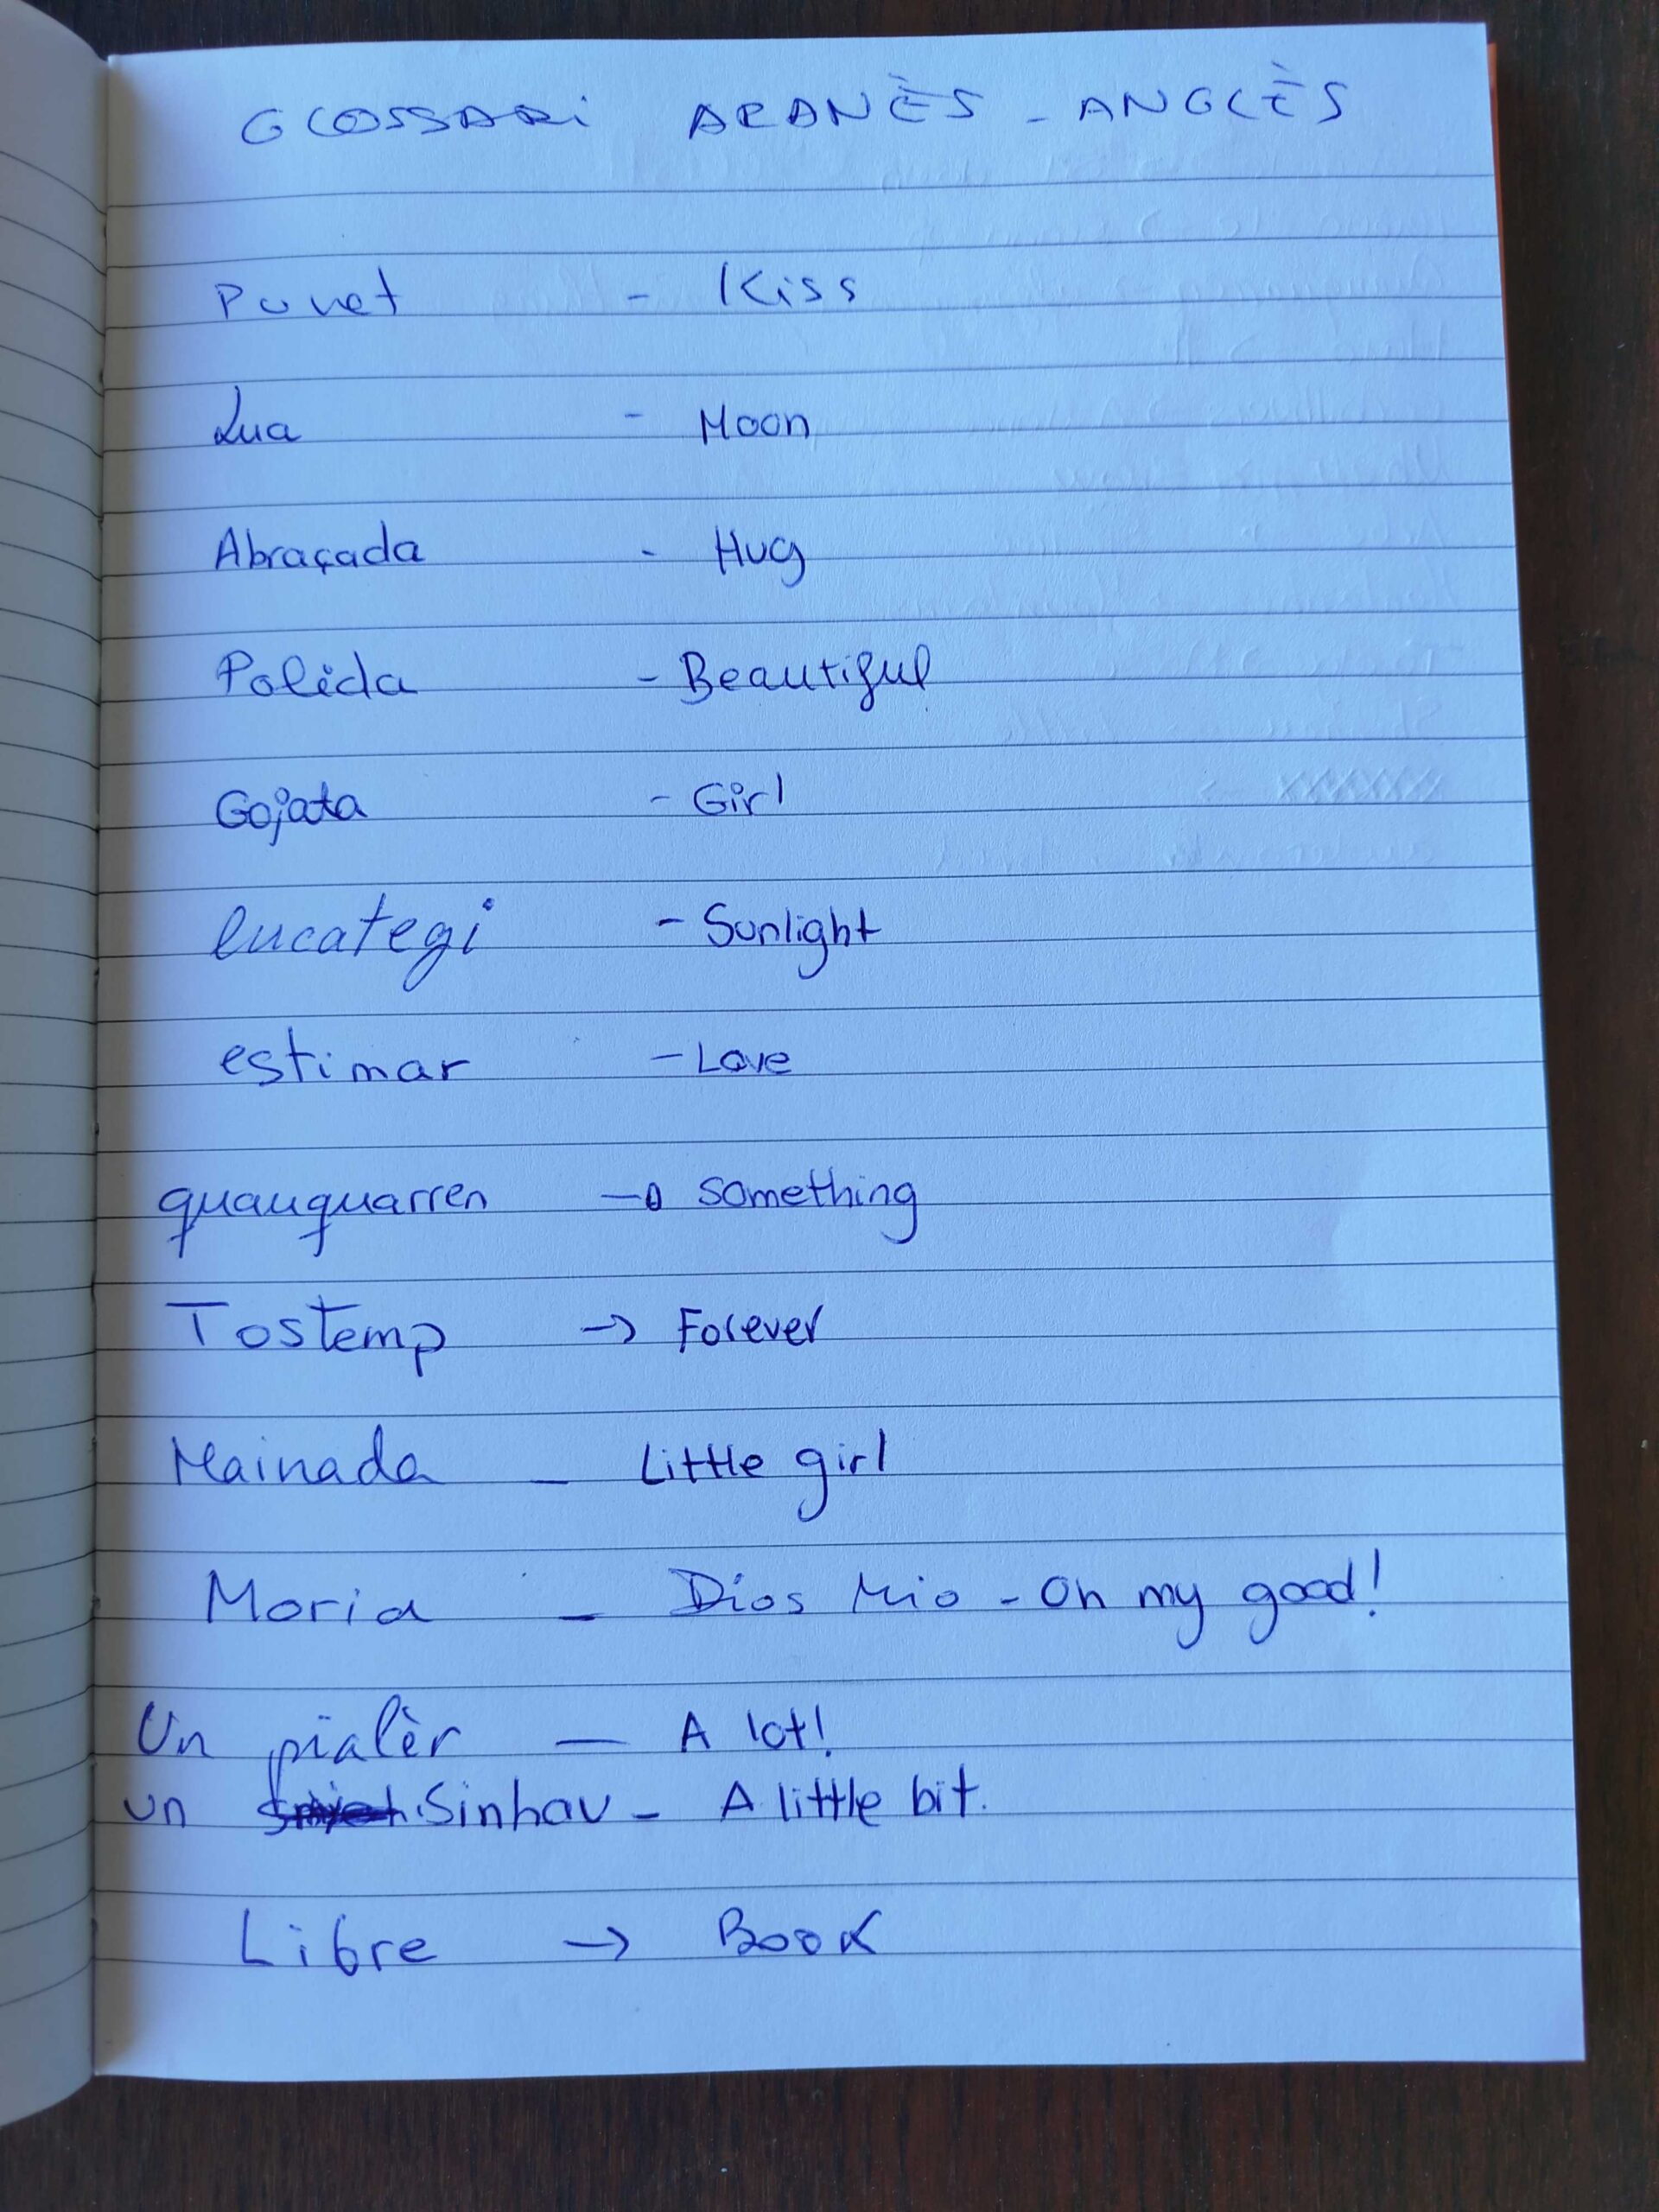 GLOSSARI ARANÈS - ANGLÈS
Punet - Kiss
Lua - Moon
Abraçada - Hug
Polida - Beautiful
Gojata - Girl
lucategi - Sunlight
estimar - Love
quauquarren → something
Tostemp → Forever
Mainada - Little girl
Moria - Dios Mio - Oh my good!
Un pialèr - A lot!
un Sinhau - A little bit.
Libre → Book